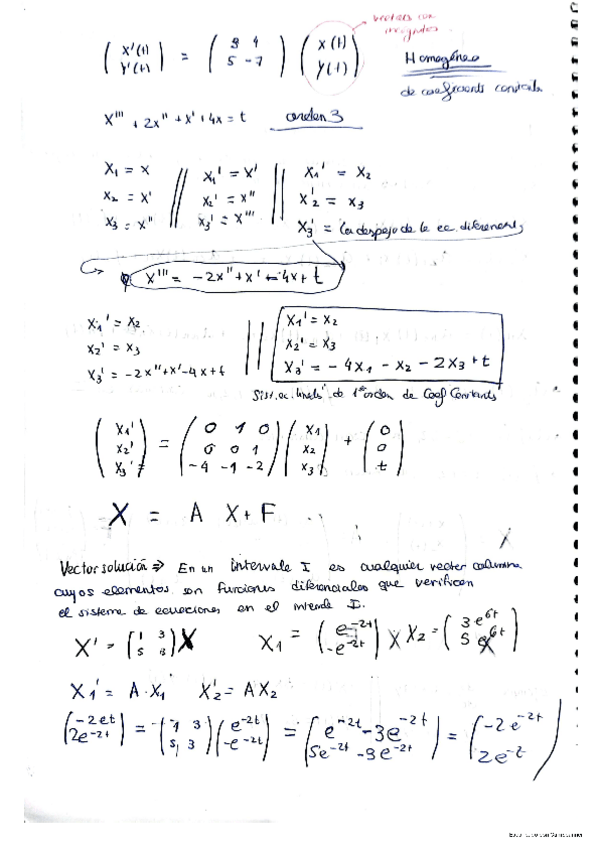 vectores con
incognitas
( X'(t) Y'(t) ) = ( 3 4 5 -7 ) ( X(t) Y(t) )
Homogéneo
de coeficientes constants
X''' + 2x'' + x' + 4x = t orden 3
X₁ = x || X₁' = X' || X₁' = X₂
X₂ = X' || X₂' = X'' || X₂' = X₃
X₃ = X'' || X₃' = X''' || X₃' = la despejo de la ec. diferencial
X''' = -2x'' + x' - 4x + t
X₁' = X₂ || X₁' = X₂
X₂' = X₃ || X₂' = X₃
X₃' = -2x'' + x' - 4x + t || X₃' = -4X₁ - X₂ - 2X₃ + t
Sist. ec. lineals de 1er orden de Coef Constants
( X₁' X₂' X₃' ) = ( 0 1 0 0 0 1 -4 -1 -2 ) ( X₁ X₂ X₃ ) + ( 0 0 t )
X = A X + F
Vector solución ⇒ En un intervalo I es cualquier vector columna
cuyos elementos son funciones diferenciales que verifican
el sistema de ecuaciones en el intervalo I.
X' = ( 1 3 5 3 ) X X₁ = ( e^-2t -e^-2t ) X X₂ = ( 3e^6t 5e^6t )
X₁' = A · X₁ X₂' = A X₂
( -2et 2e^-2t ) = ( 1 3 5, 3 ) ( e^-2t -e^-2t ) = ( e^-2t - 3e^-2t 5e^-2t - 3e^-2t ) = ( -2e^-2t 2e^-2t )